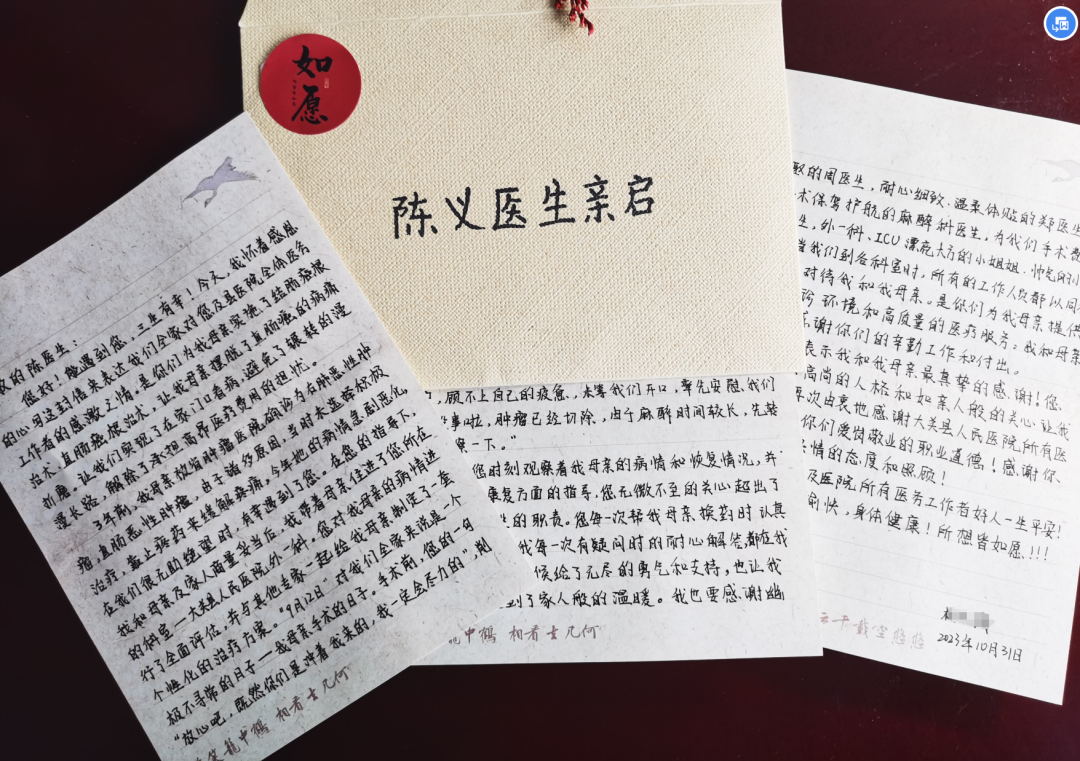 如愿
陈义医生亲启
敬的陈医生：
您好！能遇到您，三生有幸！今天，我怀着感恩
的心写这封信来表达我们全家对您及县医院全体医务
工作者的感激之情，是你们为我母亲实施了结肠癌根
治术、直肠癌根治术，让我母亲摆脱了直肠癌的病痛
折磨，让我们实现了在家门口看病，避免了辗转的漫
漫长路，解除了承担高昂医疗费用的担忧。
了年前，我母亲被省肿瘤医院确诊为右肺恶性肿
瘤、直肠恶性肿瘤，由于诸多原因，当时未选择积极
治疗，靠止痛药来缓解疼痛。今年她的病情急剧恶化，
在我们很无助绝望时，有幸遇到了您。在您的指导下，
我和母亲及家人商量妥当后，我带着母亲住进了您所在
的科室—大关县人民医院外一科。您对我母亲的病情进
行了全面评估，并与其他专家一起给我母亲制定了一套
个性化的治疗方案。"9月12日"对我们全家来说是一个
极不寻常的日子—我母亲手术的日子。手术前，您的一句
"放心吧，既然你们是冲着我来的，我一定会尽力的"刚
笼中鹤 相看去几何
，顾不上自己的疲惫，未等我们开口，率先安慰，我们
事啦，肿瘤已经切除，由于麻醉时间较长，先禁
一下。"
您时刻观察着我母亲的病情和恢复情况，并
康复方面的指导，您无微不至的关心超出了
生的职责。您每一次帮我母亲换药时认真
我每一次有疑问时的耐心解答都在我
候给了无尽的勇气和支持，也让我
到了家人般的温暖。我也要感谢幽
中鹤 相看去几何
的周医生，耐心细致、温柔体贴的郑医生
术保驾护航的麻醉科医生，为我们手术费
生，外一科、ICU漂亮大方的小姐姐、帅气的小
当我们到各科室时，所有的工作人员都以同
对待我和我母亲。是你们为我母亲提供
环境和高质量的医疗服务。我和母亲
谢你们的辛勤工作和付出。
表示我和我母亲最真挚的感谢！您、
高尚的人格和如亲人般的关心，让我
次由衷地感谢大关县人民医院所有医
你们爱岗敬业的职业道德！感谢你、
情的态度和照顾！
及医院所有医务工作者好人一生平安！
愉快，身体健康！所想皆如愿！！！
云千载空悠悠
2023年10月31日